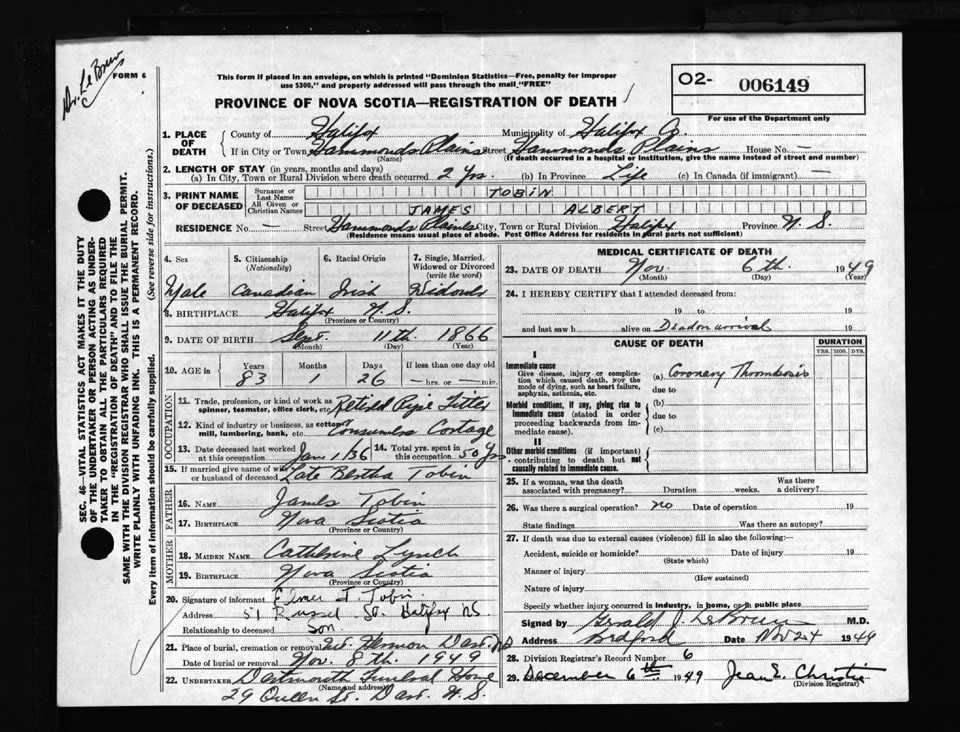 Dr. Le Brun
FORM 6
This form if placed in an envelope, on which is printed "Dominion Statistics—Free, penalty for improper
use $300," and properly addressed will pass through the mail "FREE"
O2- 006149
For use of the Department only
PROVINCE OF NOVA SCOTIA—REGISTRATION OF DEATH
1. PLACE OF DEATH County of Halifax Municipality of Halifax Co.
If in City or Town Hammonds Plains Street Hammonds Plains House No. —
(Name) (If death occurred in a hospital or institution, give the name instead of street and number)
2. LENGTH OF STAY (in years, months and days)
(a) In City, Town or Rural Division where death occurred 2 Yrs. (b) In Province Life (c) In Canada (if immigrant) —
3. PRINT NAME OF DECEASED Surname or Last Name TOBIN
All Given or Christian Names JAMES ALBERT
RESIDENCE No. — Street Hammonds Plains City, Town or Rural Division Halifax Province N. S.
(Residence means usual place of abode. Post Office Address for residents in rural parts not sufficient)
4. Sex 5. Citizenship (Nationality) 6. Racial Origin 7. Single, Married, Widowed or Divorced (write the word)
Male Canadian Irish Widower
8. BIRTHPLACE Halifax N. S.
(Province or Country)
9. DATE OF BIRTH Sept. 11th. 1866
(Month) (Day) (Year)
10. AGE in Years Months Days If less than one day old
83 1 26 — hrs. or — min.
OCCUPATION
11. Trade, profession, or kind of work as spinner, teamster, office clerk, etc. Retired Pipe Fitter
12. Kind of industry or business, as cotton mill, lumbering, bank, etc. Consumers Cortage
13. Date deceased last worked at this occupation Jan 1/36 14. Total yrs. spent in this occupation 50 Yrs.
15. If married give name of wife or husband of deceased Late Bertha Tobin
FATHER
16. NAME James Tobin
17. BIRTHPLACE Nova Scotia
(Province or Country)
MOTHER
18. MAIDEN NAME Catherine Lynch
19. BIRTHPLACE Nova Scotia
(Province or Country)
20. Signature of informant Elmer J. Tobin
Address 51 Russel St. Halifax NS
Relationship to deceased Son
21. Place of burial, cremation or removal Mt. Hermon Dart. NS
Date of burial or removal Nov. 8th. 1949
22. UNDERTAKER Dartmouth Funeral Home
(Name and address)
29 Queen St. Dart. N. S.
MEDICAL CERTIFICATE OF DEATH
23. DATE OF DEATH Nov. 6th. 1949
(Month) (Day) (Year)
24. I HEREBY CERTIFY that I attended deceased from
19 to 19
and last saw h alive on Dead on arrival 19
CAUSE OF DEATH DURATION
YRS. MOS. DYS.
I
Immediate cause
Give disease, injury or complication which caused death, NOR the mode of dying, such as heart failure, asphyxia, asthenia, etc.
(a) Coronary Thrombosis
due to
Morbid conditions, if any, giving rise to immediate cause (stated in order proceeding backwards from immediate cause).
(b)
due to
(c)
II
Other morbid conditions (if important) contributing to death but not causally related to immediate cause.
25. If a woman, was the death associated with pregnancy? Duration weeks. Was there a delivery?
26. Was there a surgical operation? no Date of operation 19
State findings Was there an autopsy?
27. If death was due to external causes (violence) fill in also the following:—
Accident, suicide or homicide? Date of injury 19
(State which)
Manner of injury
(How sustained)
Nature of injury
Specify whether injury occurred in industry, in home, or in public place
Signed by Gerald J. LeBrun M.D.
Address Bedford Date Nov 24 1949
28. Division Registrar's Record Number 6
29. December 6th 1949 Jean E. Christie
(Division Registrar)
SEC. 46—VITAL STATISTICS ACT MAKES IT THE DUTY
OF THE UNDERTAKER OR PERSON ACTING AS UNDER-
TAKER TO OBTAIN ALL THE PARTICULARS REQUIRED
IN THE "REGISTRATION OF DEATH" AND TO FILE THE
SAME WITH THE DIVISION REGISTRAR WHO SHALL ISSUE THE BURIAL PERMIT.
WRITE PLAINLY WITH UNFADING INK. THIS IS A PERMANENT RECORD.
Every item of information should be carefully supplied. (See reverse side for instructions.)